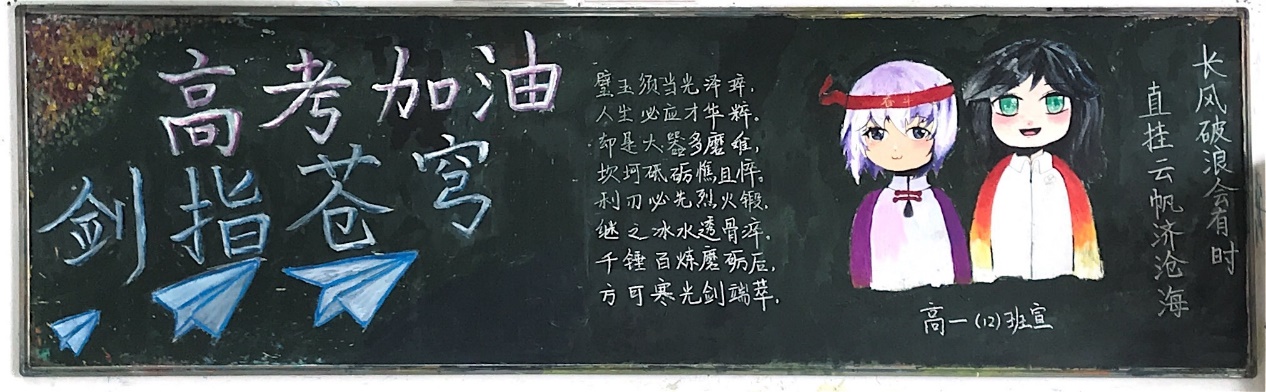 高考加油
剑指苍穹
璧玉须当光泽璀，
人生必应才华粹。
却是大器多磨难，
坎坷砥砺憔且悴。
利刃必先烈火锻，
继之冰水透骨淬。
千锤百炼磨砺后，
方可寒光剑端萃。
奋斗
高一(12)班宣
长风破浪会有时
直挂云帆济沧海